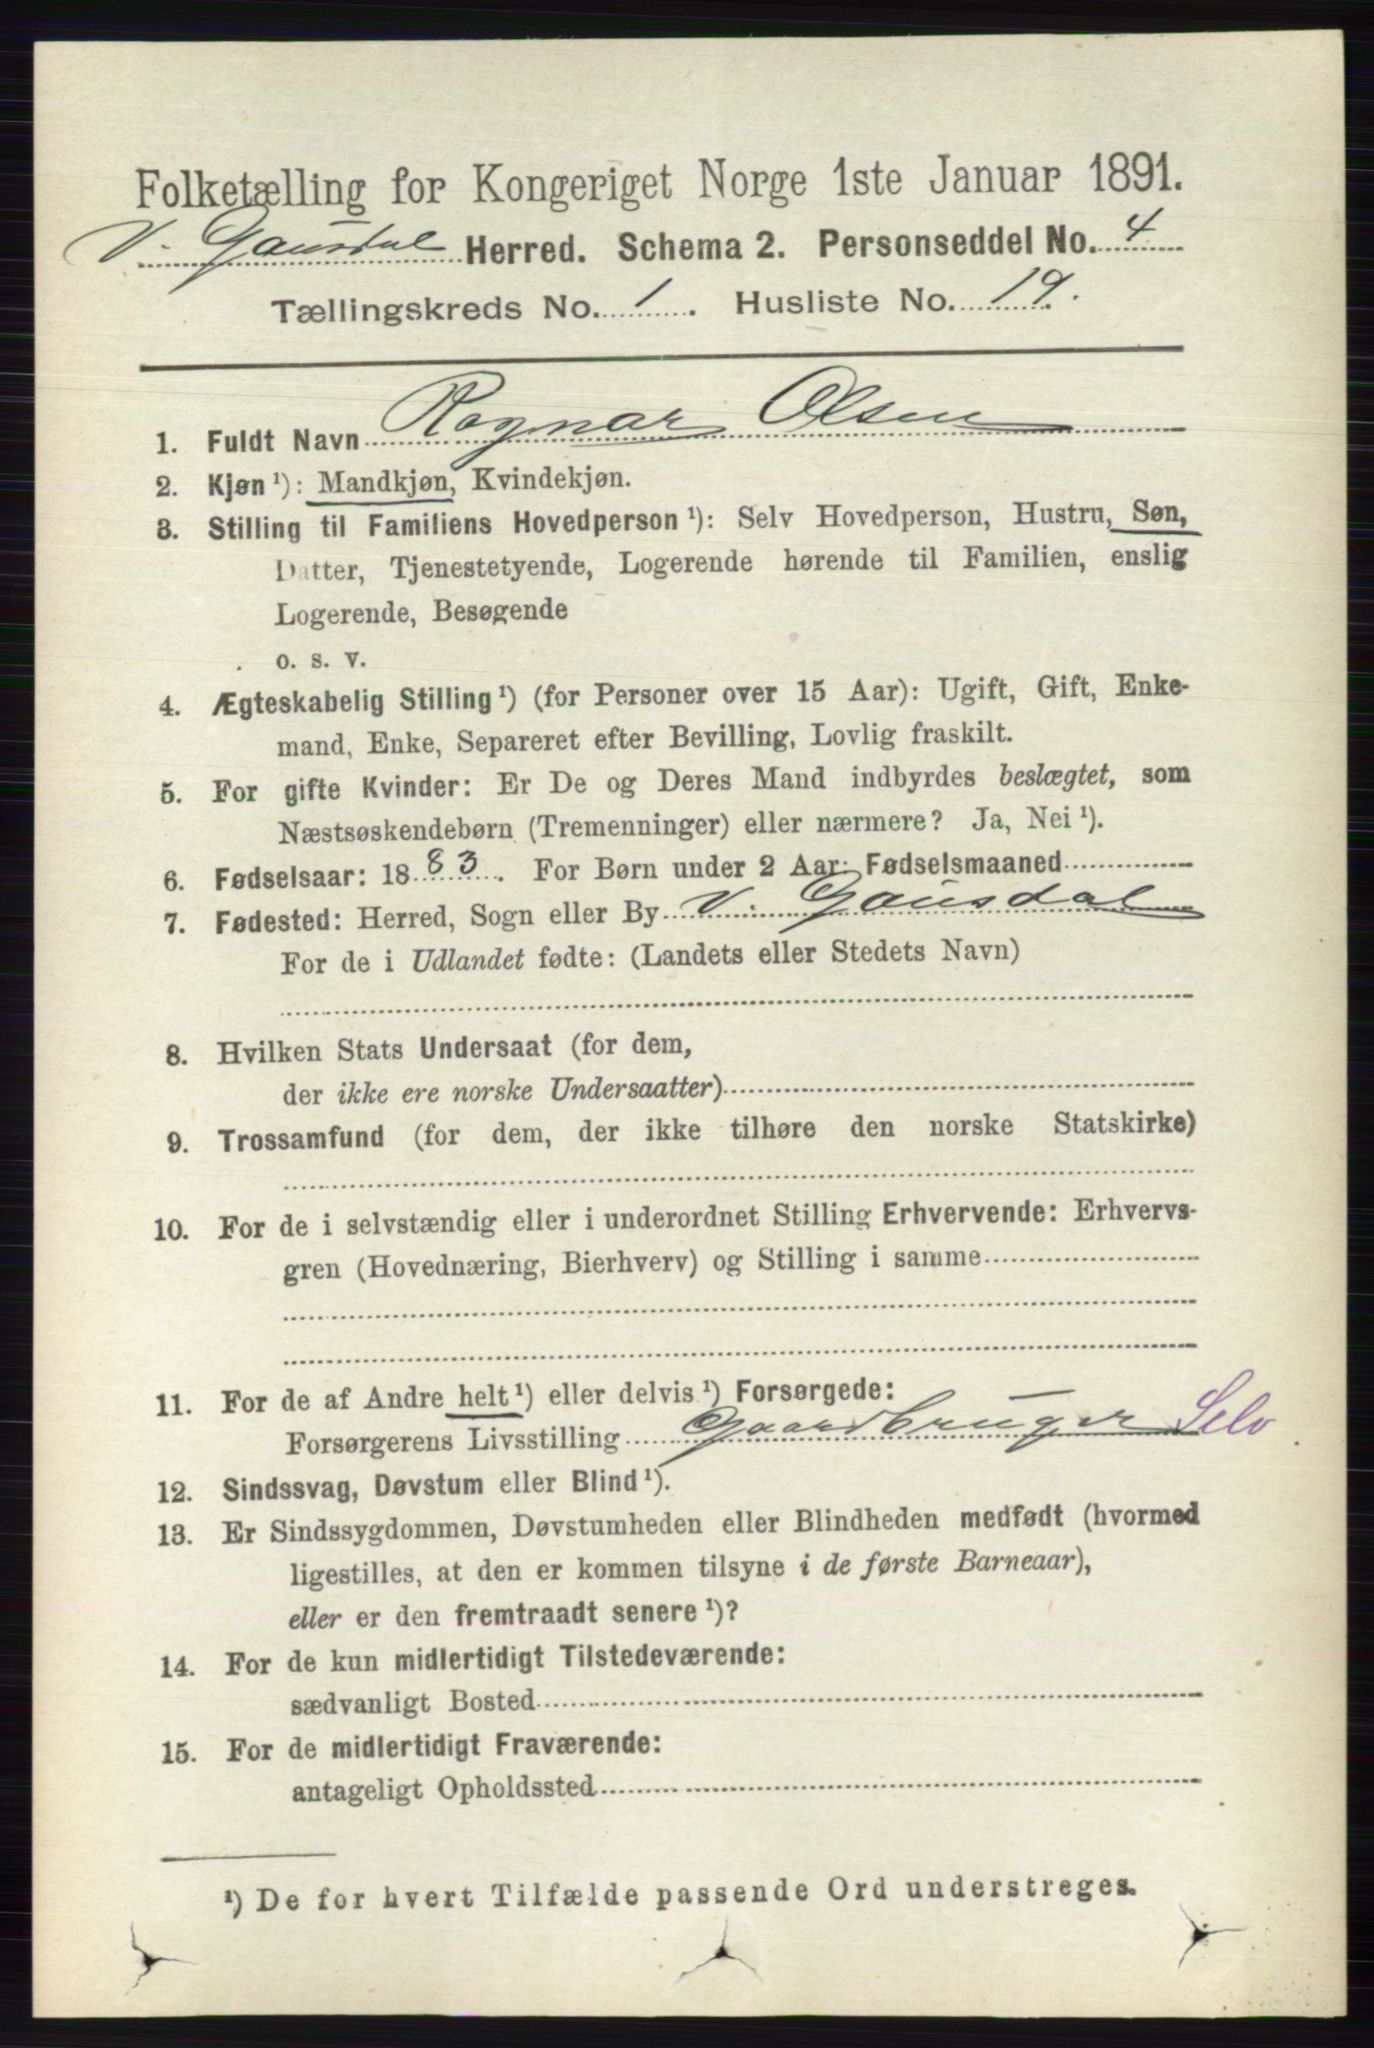 Folketælling for Kongeriget Norge 1ste Januar 1891.
V. Gausdal Herred. Schema 2. Personseddel No. 4
Tællingskreds No. 1. Husliste No. 19.
1. Fuldt Navn Ragnar Olsen
2. Kjøn ¹): Mandkjøn, Kvindekjøn.
3. Stilling til Familiens Hovedperson ¹): Selv Hovedperson, Hustru, Søn,
Datter, Tjenestetyende, Logerende hørende til Familien, enslig
Logerende, Besøgende
o. s. v.
4. Ægteskabelig Stilling ¹) (for Personer over 15 Aar): Ugift, Gift, Enke-
mand, Enke, Separeret efter Bevilling, Lovlig fraskilt.
5. For gifte Kvinder: Er De og Deres Mand indbyrdes beslægtet, som
Næstsøskendebørn (Tremenninger) eller nærmere? Ja, Nei ¹).
6. Fødselsaar: 1883. For Børn under 2 Aar: Fødselsmaaned
7. Fødested: Herred, Sogn eller By V. Gausdal
For de i Udlandet fødte: (Landets eller Stedets Navn)
8. Hvilken Stats Undersaat (for dem,
der ikke ere norske Undersaatter)
9. Trossamfund (for dem, der ikke tilhøre den norske Statskirke)
10. For de i selvstændig eller i underordnet Stilling Erhvervende: Erhvervs-
gren (Hovednæring, Bierhverv) og Stilling i samme
11. For de af Andre helt ¹) eller delvis ¹) Forsørgede:
Forsørgerens Livsstilling Gaardbruger Selv
12. Sindssvag, Døvstum eller Blind ¹).
13. Er Sindssygdommen, Døvstumheden eller Blindheden medfødt (hvormed
ligestilles, at den er kommen tilsyne i de første Barneaar),
eller er den fremtraadt senere ¹)?
14. For de kun midlertidigt Tilstedeværende:
sædvanligt Bosted
15. For de midlertidigt Fraværende:
antageligt Opholdssted
¹) De for hvert Tilfælde passende Ord understreges.